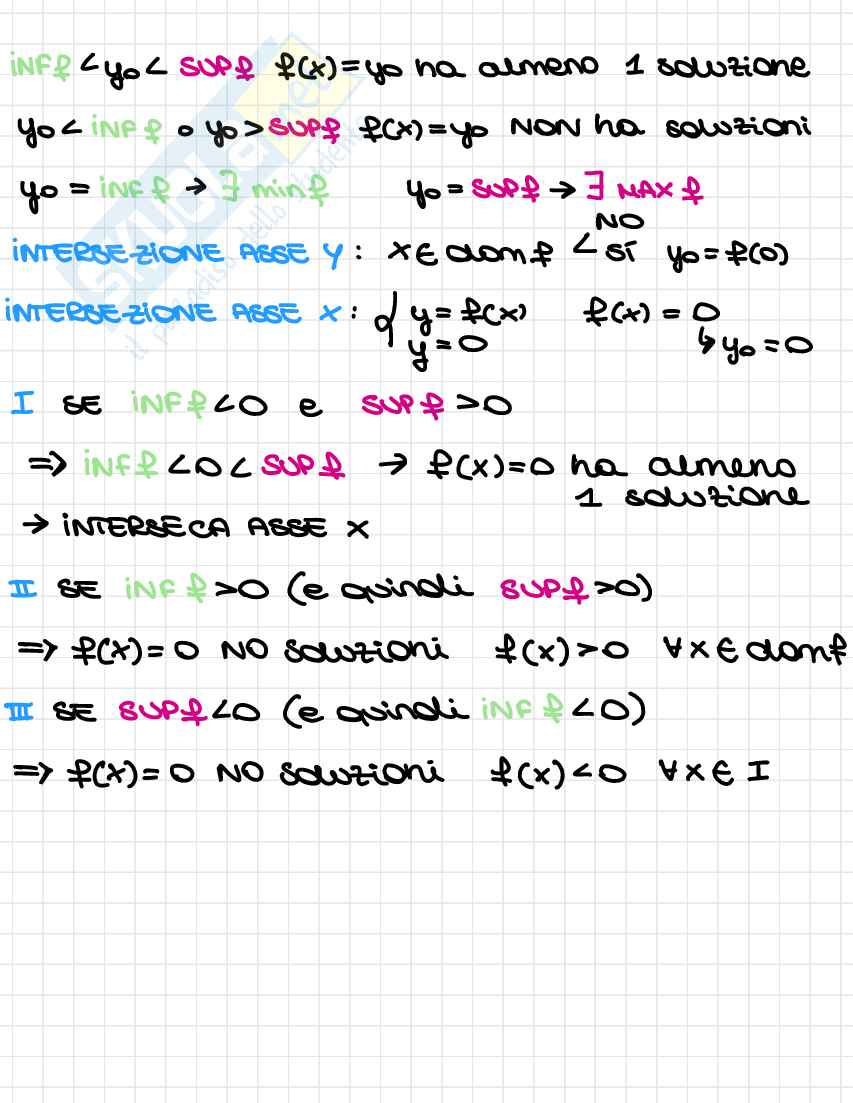 inf f < y₀ < sup f f(x) = y₀ ha almeno 1 soluzione
y₀ < inf f o y₀ > sup f f(x) = y₀ NON ha soluzioni
y₀ = inf f → ∃ min f y₀ = sup f → ∃ MAX f
INTERSEZIONE ASSE Y: x ∈ dom f < NO SÍ y₀ = f(0)
INTERSEZIONE ASSE X: { y = f(x) f(x) = 0
y = 0 ↳ y₀ = 0
I SE inf f < 0 e sup f > 0
⇒ inf f < 0 < sup f → f(x) = 0 ha almeno
1 soluzione
→ INTERSECA ASSE X
II SE inf f > 0 (e quindi sup f > 0)
⇒ f(x) = 0 NO soluzioni f(x) > 0 ∀ x ∈ dom f
III SE sup f < 0 (e quindi inf f < 0)
⇒ f(x) = 0 NO soluzioni f(x) < 0 ∀ x ∈ I
SKUOLA.net
il paradiso dello studente